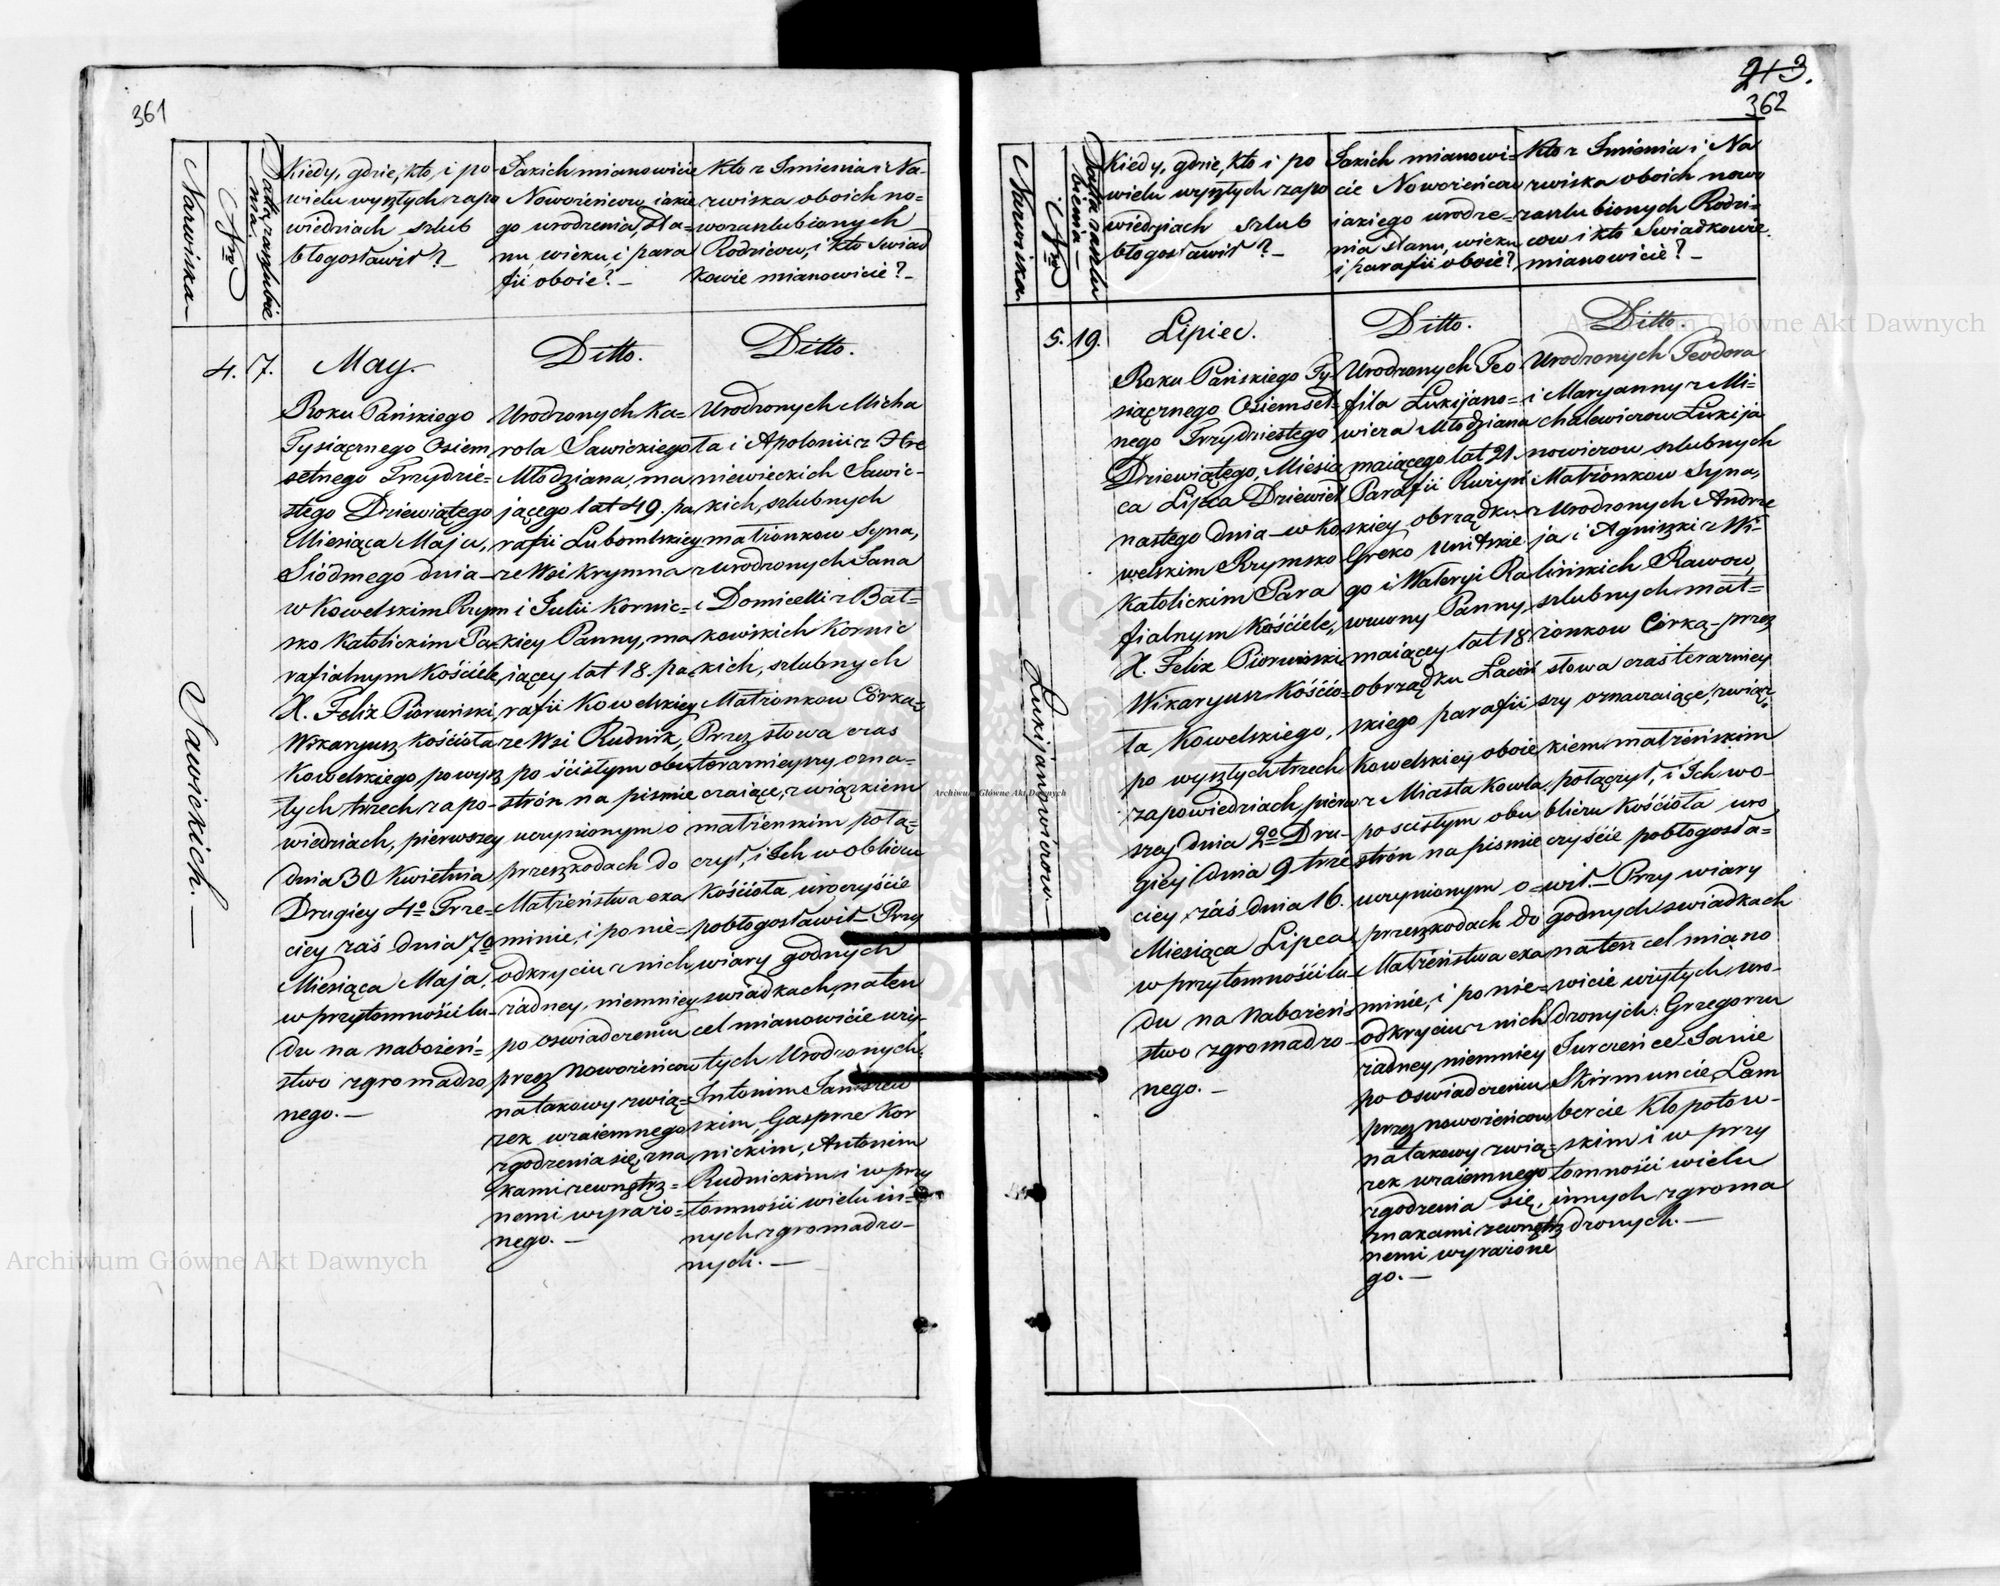 361
Nazwiska
Nro
Data zaszlubie
nia.
Kiedy, gdzie, kto, i po
wielu wyszłych zapo
wiedziach szlub
błogosławił? –
Jakich mianowicie
Nowożeńcow, iakie
go urodzenia, sta=
nu, wieku, i para
fii oboie? –
Kto z Imienia i Na=
zwiska oboich no=
wozaszlubionych
Rodzicow, i kto Swiad
kowie mianowicie? –
Sawickich. –
4. 7.
May.
Roku Pańskiego
Tysiącznego Osiem
setnego Trzydzie=
stego Dziewiątego
Miesiąca Maja,
Siódmego dnia –
w Kowelskim Rzym
sko Katolickim Pa=
rafialnym Kościele,
X. Felix Piorunski,
Wikaryusz Kościoła
Kowelskiego, po wysz
łych trzech zapo=
wiedziach, pierwszey
dnia 30 Kwietnia
Drugiey 4o Trze=
ciey zaś dnia 7o
Miesiąca Maja,
w przytomności lu=
du na nabożeń=
stwo zgromadzo
nego. –
Ditto.
Urodzonych Ka=
rola Sawickiego
Młodziana, ma
jącego lat 49. pa
rafii Lubomlskiey
ze Wsi Krymna
i Julii Kornic=
kiey Panny, ma
iącey lat 18. pa
rafii Kowelskiey
ze Wsi Rudnik,
po ścisłym obu
strón na pismie
uczynionym o
przeszkodach do
Małżeństwa exa
minie, i po nie=
odkryciu z nich
żadney, niemniey
po oswiadczeniu
przez Nowożeńcow
na takowy zwią=
zek wzaiemnego
zgodzenia się, zna
kami zewnętrz=
nemi wyrażo=
nego. –
Ditto.
Urodzonych Micha
ła i Apolonii z Hre
niewieckich Sawic=
kich, szlubnych
małżonkow Syna,
z urodzonych Jana
i Domicelli z Bat=
kowskich Kornic
kich, szlubnych
Małżonkow Córkaą
Przez słowa czas
teraznieyszy ozna=
czaiące, związkiem
małżenskim połą=
czył, i Ich w obliczu
Kościoła uroczyście
pobłogosławił – Przy
wiary godnych
swiadkach, na ten
cel mianowicie wzię=
tych Urodzonych
Antonim Janiszew
skim, Gasprze Kor
nickim, Antonim
Rudnickim i w przy
tomności wielu in=
nych zgromadzo=
nych. –
213.
362
Nazwiska
Nro
Data zaszlu
bienia –
Kiedy, gdzie, kto i po
wielu wyszłych zapo
wiedziach szlub
błogosławił? –
Jakich mianowi=
cie Nowożeńcow
iakiego urodze=
nia stanu, wieku
i parafii oboie?
Kto z Imienia i Na
zwiska oboich nowo
zaszlubionych Rodzi=
cow i kto Swiadkowie
mianowicie? –
Lukijanowiczow. –
5. 19.
Lipiec.
Roku Pańskiego Ty=
siącznego Osiemset=
nego Trzydziestego
Dziewiątego, Miesią
ca Lipca Dziewięt
nastego dnia – w Ko
welskim Rzymsko
Katolickim Para
fialnym Kościele,
X. Felix Piorunski
Wikaryusz Kościo=
ła Kowelskiego,
po wyszłych trzech
zapowiedziach, pierw
szey dnia 2o Dru=
giey dnia 9 trze
ciey zaś dnia 16.
Miesiąca Lipca
w przytomności lu=
du na Nabożeń=
stwo zgromadzo=
nego. –
Ditto.
Urodzonych Teo
fila Lukijano=
wicza Młodziana
maiącego lat 21.
Parafii Rużyń
skiey obrządku
Greko Unitskie
go i Waleryi Ra
wowny Panny,
maiącey lat 18
obrządku Łaciń
skiego parafii
Kowelskiey oboie
z Miasta Kowla,
po scisłym obu
strón na pismie
uczynionym o=
przeszkodach do
Małżeństwa exa
minie, i po nie=
odkryciu z nich
żadney, niemniey
po Oswiadczeniu
przez nowożeńcow
na takowy zwią=
zek wzaiemnego
zgodzenia się,
znakami zewnętrz
nemi wyrażone
go. –
Ditto.
Urodzonych Teodora
i Maryanny z Mi=
chalewiczow Lukija
nowiczow szlubnych
Małżonkow Syna,
z Urodzonych Andrze
ja i Agnieszki z Wi=
lińskich Rawow,
szlubnych mał=
żonkow Córką – przez
słowa czas terazniey
szy oznaczaiące, związ
kiem małżeńskim
połączył, i Ich wo=
bliczu Kościoła uro
czyście pobłogosła=
wił. – Przy wiary
godnych swiadkach
na ten cel miano
wicie wziętych uro=
dzonych: Grzegorzu
Turczeńce Janie
Skirmuncie, Lam
bercie Kłopotow=
skim i w przy
tomności wielu
innych zgroma
dzonych. –